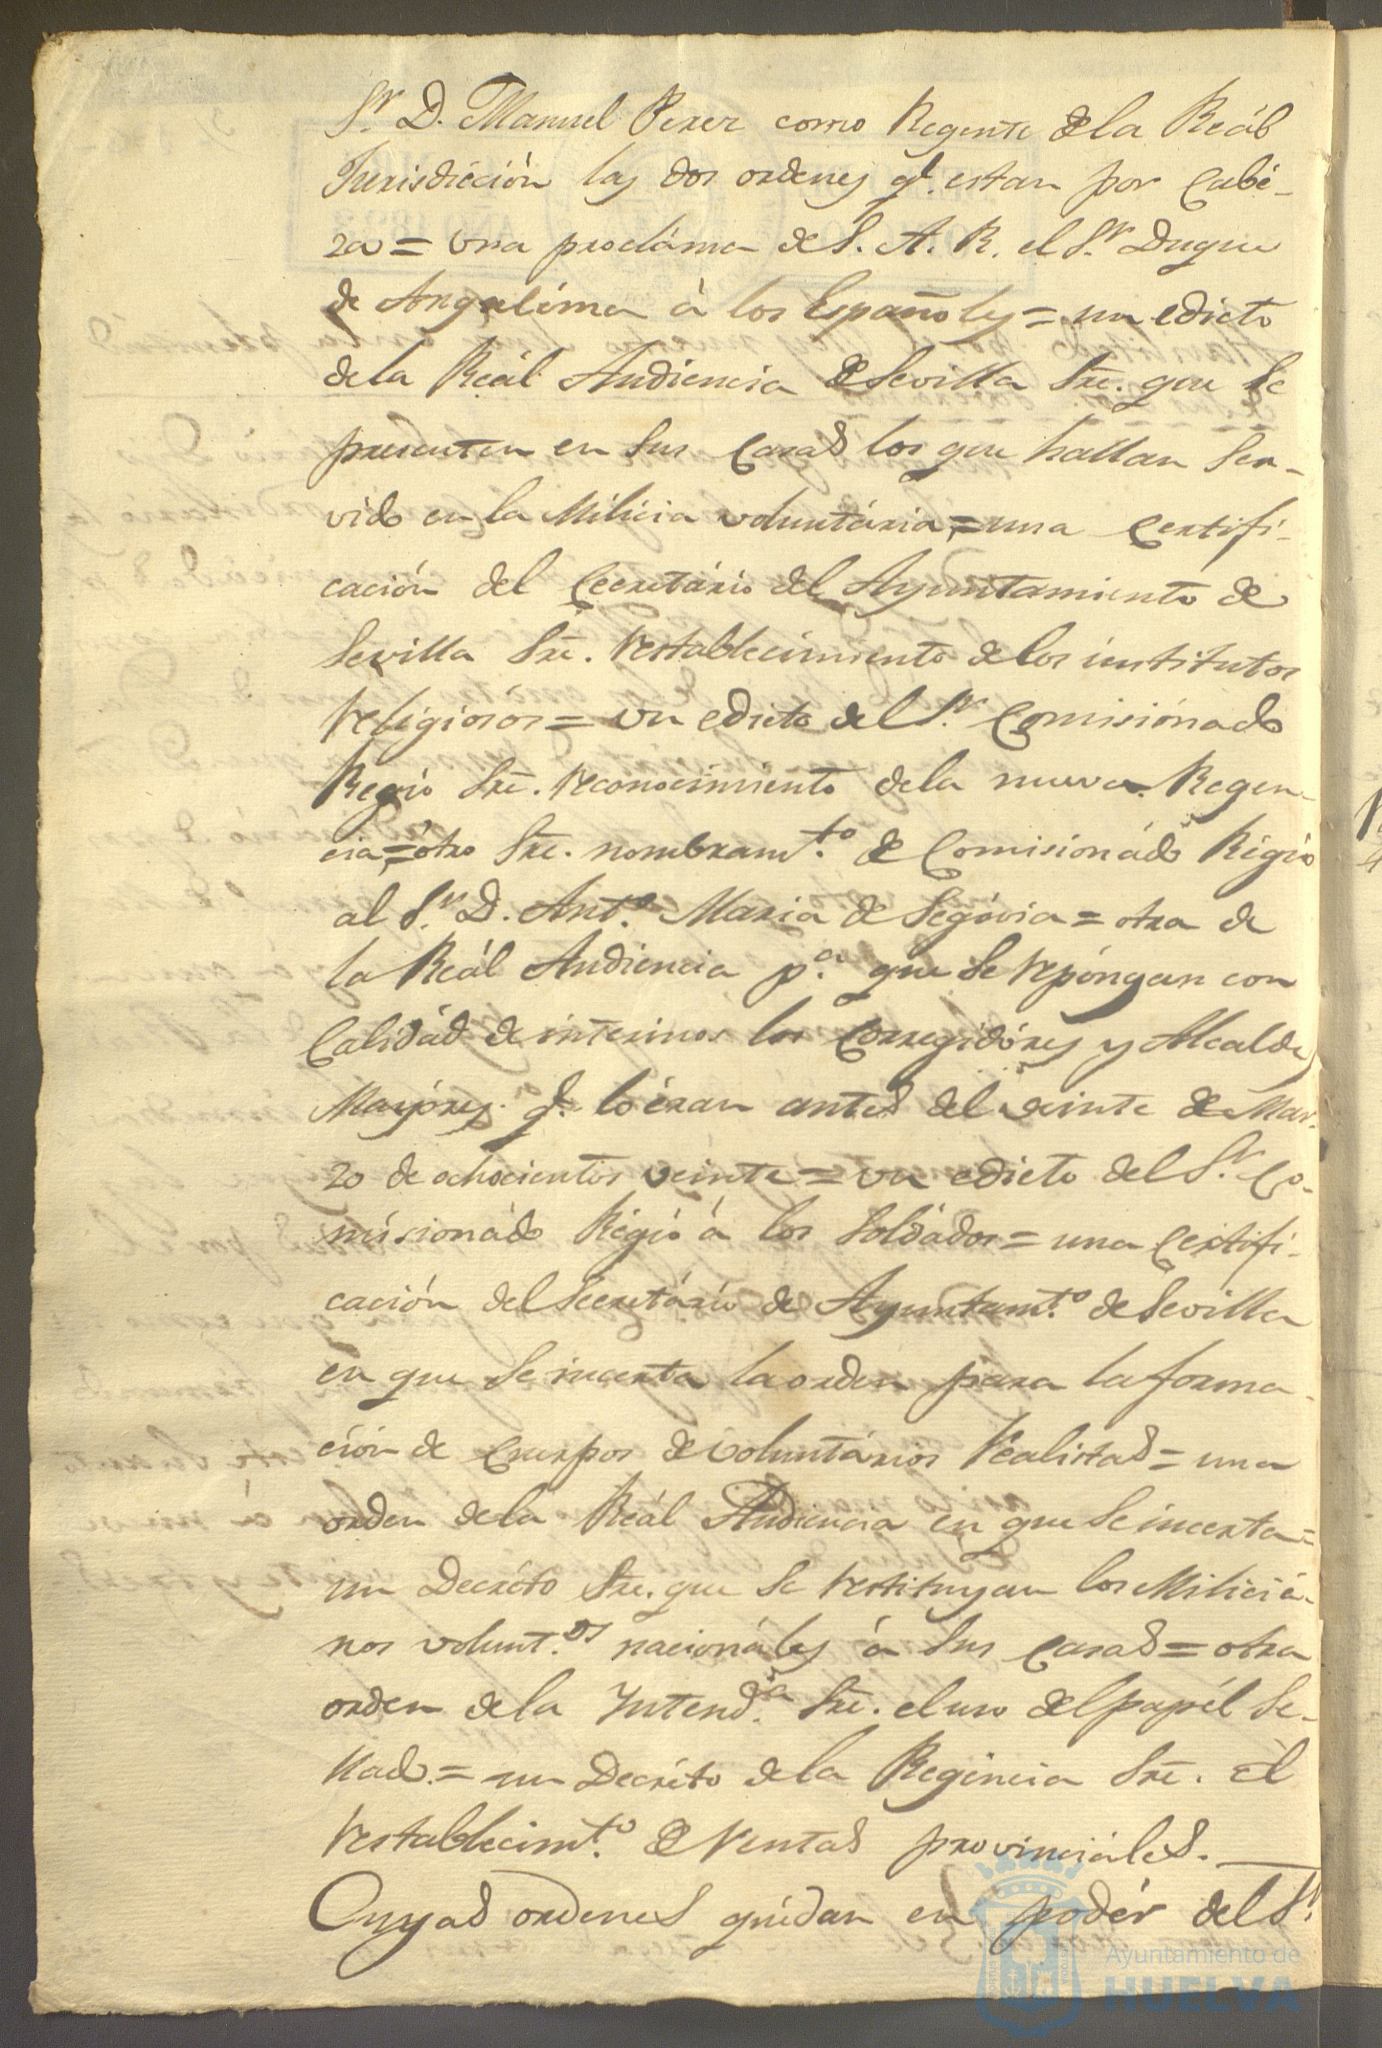 Sr. D. Manuel Perez como Regente de la Reál
Jurisdicción las dos ordenes q.e estan por Cabé-
za = una procláma de S. A. R. el Sr. Duque
de Anguléma á los Españoles = un edicto
de la Reál Audiencia de Sevilla Sre. que se
presenten en sus Casas los que hallan ser-
vido en la Milicia voluntária, = una Certifi-
cación del Secretário del Ayuntamiento de
Sevilla Sre. restablecimiento de los institutos
religiósos = un edicto del Sr. Comisionado
Regio Sre. reconocimiento de la nueva Regen-
cia = ótro Sre. nombramt.o de Comisionádo Régio
al Sr. D. Ant.o Maria de Segóvia = otra de
la Reál Audiencia p.a que se repóngan con
Calidád de interinos los Corregidóres y Alcaldes
Mayóres q.e lo éran antes del veinte de Mar-
zo de ochocientos veinte = un edicto del Sr. Co-
misionádo Régio á los Soldádos = una Certifi-
cación del Secretário de Ayuntamt.o de Sevilla
en que se incerta la orden para la forma-
ción de Cuerpos de voluntários realistas = una
orden de la Reál Audiencia en que se incerta =
un Decréto Sre. que se restituyan los Miliciá-
nos volunt.os nacionáles á sus Casas = otra
orden de la Yntend.a Sre. el uso del papél Se-
llado = un Decréto de la Regéncia Sre. el
restablecimt.o de rentas provinciáles.
Cuyas ordenes quédan en podér del Sr.
Ayuntamiento de
HUELVA